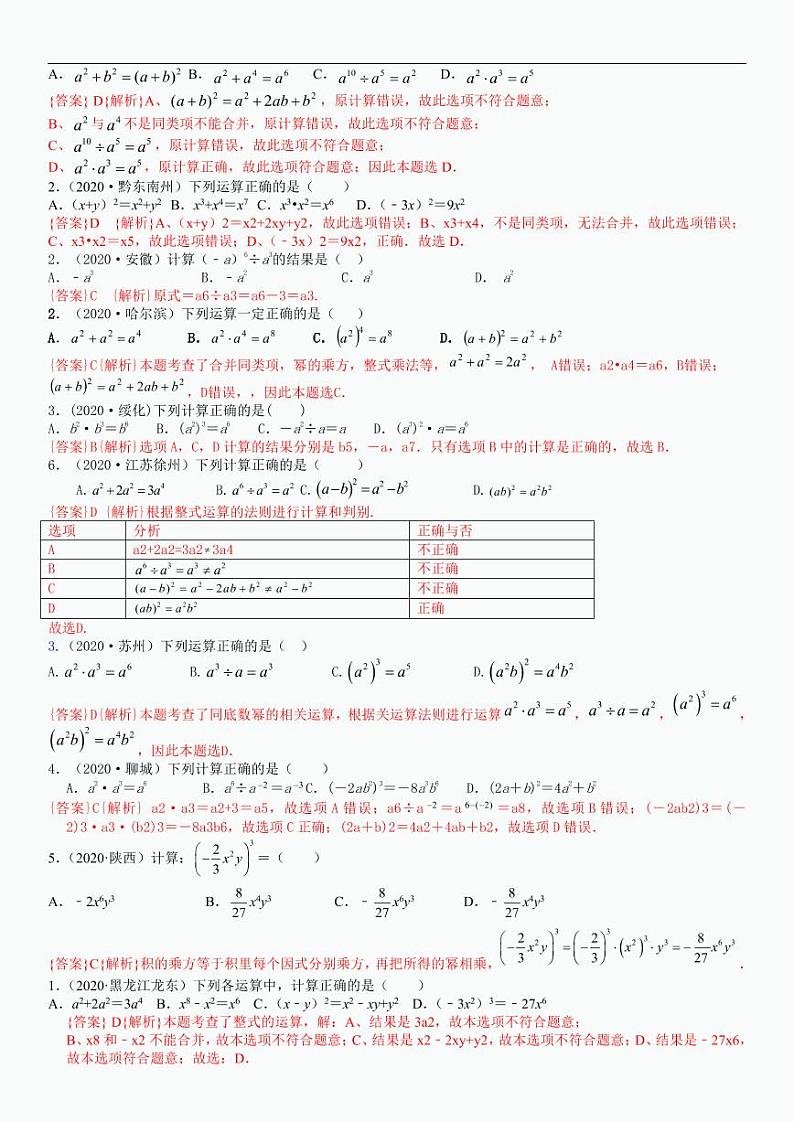 A．a² + b² = (a + b)² B．a² + a⁴ = a⁶ C．a¹⁰ ÷ a⁵ = a² D．a² · a³ = a⁵
{答案} D{解析}A、(a + b)² = a² + 2ab + b²，原计算错误，故此选项不符合题意；
B、a²与a⁴不是同类项不能合并，原计算错误，故此选项不符合题意；
C、a¹⁰ ÷ a⁵ = a⁵，原计算错误，故此选项不符合题意；
D、a² · a³ = a⁵，原计算正确，故此选项符合题意；因此本题选 D．
2．（2020·黔东南州）下列运算正确的是（ ）
A．(x+y)²＝x²+y² B．x³+x⁴＝x⁷ C．x³•x²＝x⁶ D．(﹣3x)²＝9x²
{答案}D {解析}A、（x+y）2＝x2+2xy+y2，故此选项错误；B、x3+x4，不是同类项，无法合并，故此选项错误；
C、x3•x2＝x5，故此选项错误；D、(﹣3x）2＝9x2，正确．故选 D．
2．（2020·安徽）计算（﹣a）⁶÷a³的结果是（ ）
A．﹣a³ B．﹣a² C．a³ D． a²
{答案}C {解析}原式＝a6÷a3＝a6－3＝a3.
2．（2020·哈尔滨）下列运算一定正确的是（ ）
A．a² + a² = a⁴ B．a² · a⁴ = a⁸ C．(a²)⁴ = a⁸ D．(a + b)² = a² + b²
{答案}C{解析}本题考查了合并同类项，幂的乘方，整式乘法等，a² + a² = 2a²， A错误；a2•a4＝a6，B错误；
(a + b)² = a² + 2ab + b²，D错误，，因此本题选C．
3．(2020·绥化)下列计算正确的是( )
A．b²·b³＝b⁶ B．(a²)³＝a⁶ C．－a²÷a＝a D．(a³)²·a＝a⁶
{答案}B{解析}选项 A，C，D 计算的结果分别是 b5，－a，a7．只有选项 B 中的计算是正确的，故选 B．
6．（2020·江苏徐州）下列计算正确的是（ ）
A. a² + 2a² = 3a⁴ B. a⁶ ÷ a³ = a² C. (a−b)² = a² − b² D. (ab)² = a²b²
{答案}D {解析}根据整式运算的法则进行计算和判别.
选项 分析 正确与否
A a2+2a2=3a2≠3a4 不正确
B a⁶ ÷ a³ = a³ ≠ a² 不正确
C (a − b)² = a² − 2ab + b² ≠ a² − b² 不正确
D (ab)² = a²b² 正确
故选D.
3.（2020·苏州）下列运算正确的是（ ）
A. a² · a³ = a⁶ B. a³ ÷ a = a³ C. (a²)³ = a⁵ D. (a²b)² = a⁴b²
{答案}D{解析}本题考查了同底数幂的相关运算，根据关运算法则进行运算a² · a³ = a⁵，a³ ÷ a = a²，(a²)³ = a⁶，
(a²b)² = a⁴b²，因此本题选D．
4．（2020·聊城）下列计算正确的是（ ）
A．a²·a³＝a⁶ B．a⁶÷a⁻²＝a⁻³ C．(－2ab²)³＝－8a³b⁶ D．(2a＋b)²＝4a²＋b²
{答案}C{解析} a2·a3＝a2+3＝a5，故选项 A 错误；a6÷a⁻²＝a⁶⁻⁽⁻²⁾＝a8，故选项 B 错误；(－2ab2)3＝(－
2)3·a3·(b2)3＝－8a3b6，故选项 C 正确；(2a＋b)2＝4a2＋4ab＋b2，故选项 D 错误．
5．（2020·陕西）计算：(−2/3 x²y)³＝（ ）
A．﹣2x⁶y³ B．8/27 x⁴y³ C．﹣8/27 x⁶y³ D．﹣8/27 x⁴y³
{答案}C{解析}积的乘方等于积里每个因式分别乘方，再把所得的幂相乘，(−2/3 x²y)³ = (−2/3)³ · (x²)³ · y³ = −8/27 x⁶y³．
1．（2020·黑龙江龙东）下列各运算中，计算正确的是（ ）
A．a²+2a²＝3a⁴ B．x⁸﹣x²＝x⁶ C．(x﹣y)²＝x²﹣xy+y² D．(﹣3x²)³＝﹣27x⁶
{答案} D{解析}本题考查了整式的运算，解：A、结果是 3a2，故本选项不符合题意；
B、x8 和﹣x2 不能合并，故本选项不符合题意；C、结果是 x2﹣2xy+y2，故本选项不符合题意；D、结果是﹣27x6，
故本选项符合题意；故选：D．